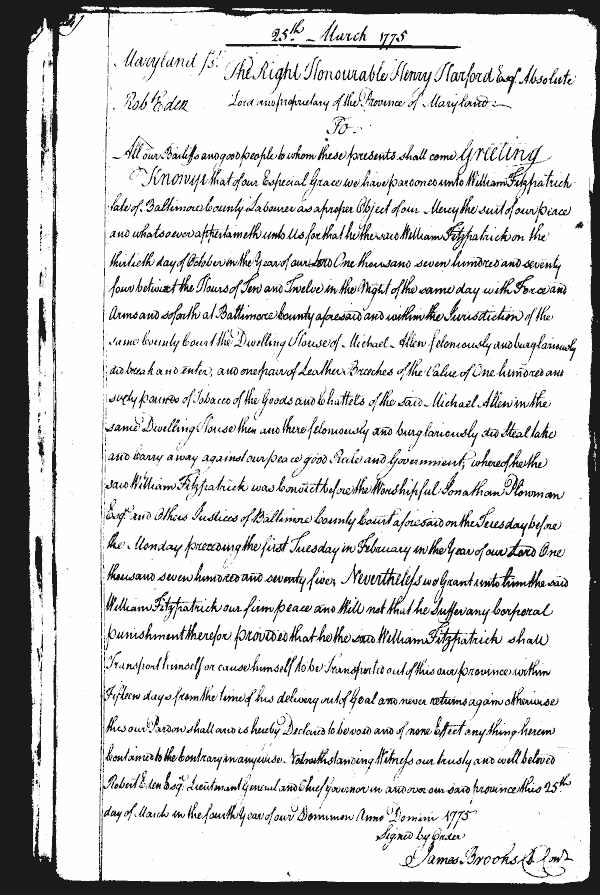 25th March 1775
Maryland ss. The Right Honourable Henry Harford Esqr. Absolute
Robt Eden Lord and proprietary of the Province of Maryland
To
All our Bailiffs and good people to whom these presents shall come Greeting
Know ye that of our Especial Grace we have pardoned unto William Fitzpatrick
late of Baltimore County Labourer as a proper Object of our Mercy the suit of our peace
and whatsoever appertaineth unto Us for that he the said William Fitzpatrick on the
thirtieth day of October in the Year of our Lord One thousand seven hundred and seventy
four betwixt the Hours of Ten and Twelve in the Night of the same day with Force and
Arms and soforth at Baltimore County aforesaid and within the Jurisdiction of the
same County Court the Dwelling House of Michael Allen feloniously and burglariously
did break and enter, and one pair of Leather Breeches of the Value of One hundred and
sixty pounds of Tobacco of the Goods and Chattels of the said Michael Allen in the
same Dwelling House then and there feloniously and burglariously did Steal take
and carry away against our peace good Rule and Government, whereof he the
said William Fitzpatrick was Convict before the Worshipful Jonathan Plowman
Esqr. and Others Justices of Baltimore County Court aforesaid on the Tuesday before
the Monday preceeding the first Tuesday in February in the Year of our Lord One
thousand seven hundred and seventy five; Nevertheless we Grant unto him the said
William Fitzpatrick our firm peace and Will not that he suffer any Corporal
punishment therefor provided that he the said William Fitzpatrick shall
Transport himself or cause himself to be Transported out of this our province within
Fifteen days from the time of his delivery out of Goal and never return again otherwise
this our Pardon shall and is hereby Declared to be void and of none Effect any thing herein
Contained to the Contrary in any wise Notwithstanding Witness our trusty and well beloved
Robert Eden Esqr. Lieutenant General and Chief Governor in and over our said province this 25th
day of March in the fourth Year of our Dominion Anno Domini 1775
Signed by Order
James Brooks